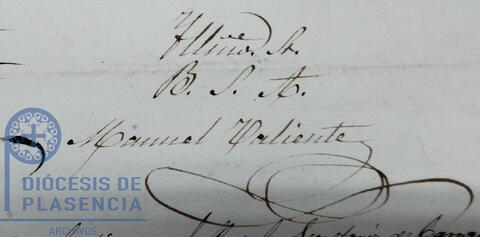 Yllmo. Sr.
B. S. A.
Manuel Valiente
DIÓCESIS DE
PLASENCIA
ARCHIVOS